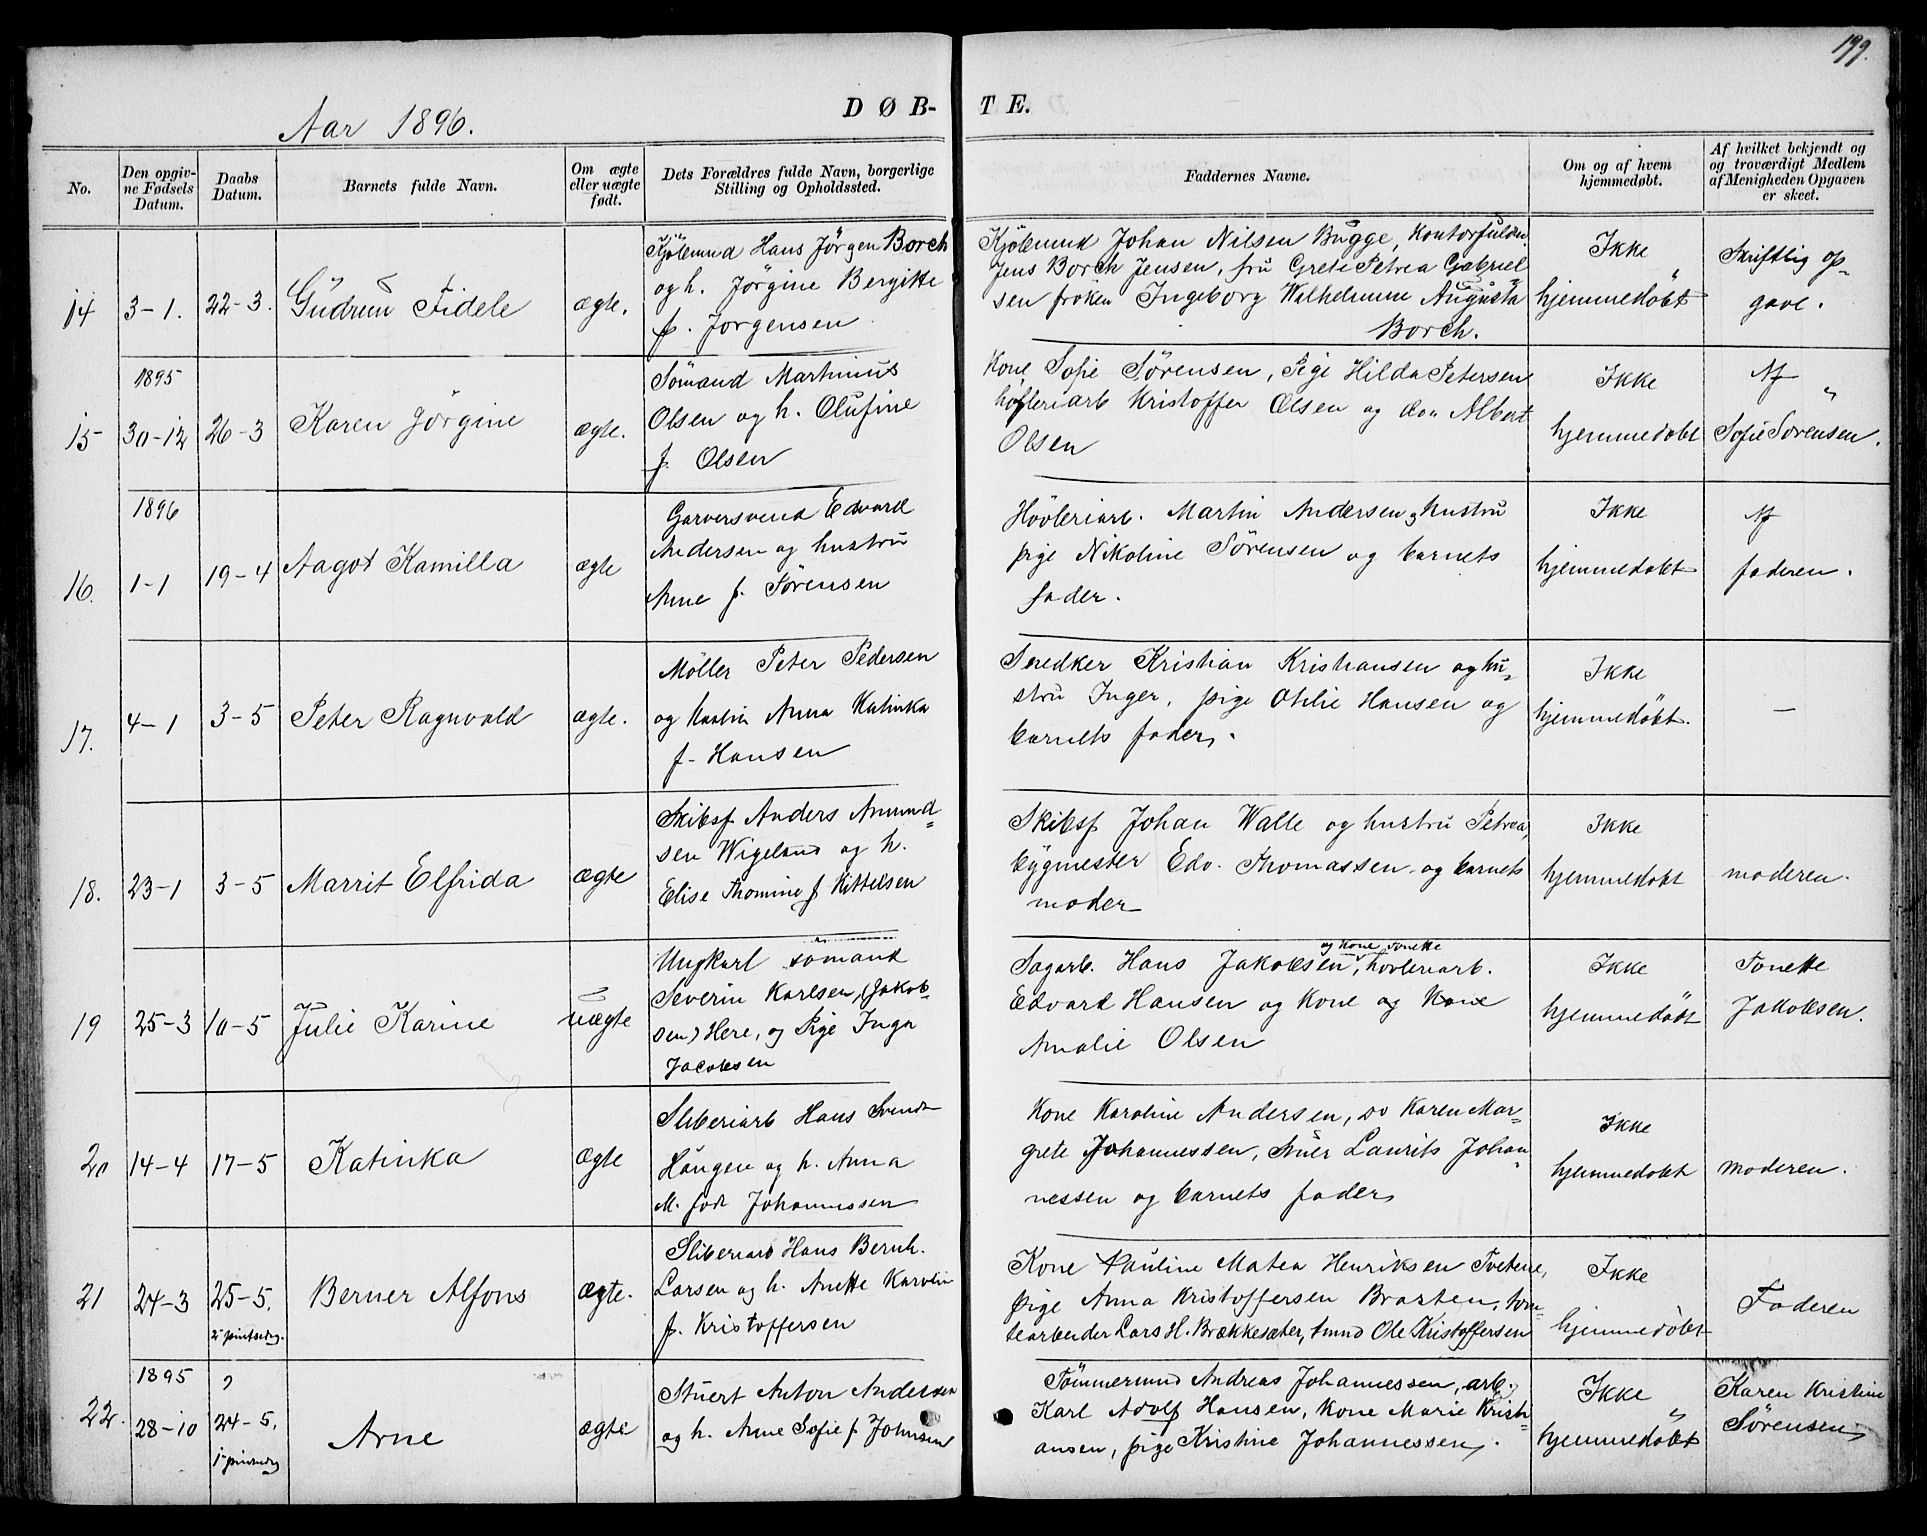 199.
Aar 1896.
DØB-
TE.
No.
Den opgiv-
ne Fødsels
Datum.
Daabs
Datum.
Barnets fulde Navn.
Om ægte
eller uægte
født.
Dets Forældres fulde Navn, borgerlige
Stilling og Opholdssted.
Faddernes Navne.
Om og af hvem
hjemmedøbt.
Af hvilket bekjendt og
og troværdigt Medlem
af Menigheden Opgaven
er skeet.
14
3-1.
22-3.
Gudrun Fidele
ægte.
Kjöbmd Hans Jörgen Borch
og h. Jörgine Bergitte
f. Jorgensen
Kjöbmd Johan Nilsen Bugge, Kontorfuldm.
Jens Borch Jensen, fru Grete Petrea Gabriel
sen fröken Ingeborg Walhelmine Augusta
Borch.
Ikke
hjemmedöbt
Skriftlig op-
gave.
15
1895
30-12
26-3
Karen Jörgine
ægte.
Sömand Martinius
Olsen og h. Olufine
f. Olsen
Kone Sofie Sörensen, Pige Hilda Petersen
höfleriarb Kristoffer Olsen og do Albert
Olsen
Ikke
hjemmedobt
Af
Sofie Sörensen.
16.
1896
1-1
19-4
Aagot Kamilla
ægte
Garversvend Edvard
Andersen og hustru
Anne f. Sörensen
Hövleriarb. Martin Andersen og hustru
pige Nikoline Sörensen og barnets
fader.
Ikke
hjemmedobt
Af
faderen.
17.
4-1
3-5
Peter Ragnvald
ægte.
Möller Peter Pedersen
og hustru Anna Katinka
f. Hansen
Snedker Kristian Kristiansen og hu-
stru Inger, pige Othilie Hansen og
barnets fader.
Ikke
hjemmedöbt.
—
18.
23-1
3-5
Marrit Elfrida
ægte
Skibsf Anders Amund-
sen Wigeland og h.
Elise Thomine f Kittelsen
Skibsf Johan Walle og hustru Petrea,
bygmester Edv. Thomassen og barnets
moder
Ikke
hjemmedobt
moderen.
19
25-3
10-5
Julie Karine
uægte
Ungkarl sömand
Severin Karlsen, (Jakob-
sen) Here, og Pige Inga
Jacobsen
og Kone Tonette
Sagarb. Hans Jakobsen, hövleriarb.
Edvard Hansen og Kone og Kone
Amalie Olsen
Ikke
hjemmedöbt
Tonette
Jakobsen.
20
14-4
17-5
Katinka
ægte
Sliberiarb Hans Svend
Haugen og h. Anna
M. föd Johannessen
Kone Karoline Andersen, do Karen Mar-
grete Johannessen, Stuer Laurits Johan-
nessen og barnets fader
Ikke
hjemmedobt
Moderen.
21
24-3
25-5.
2 pintsedag.
Berner Alfons
ægte.
Sliberiarb Hans Bernh.
Larsen og h. Anette Karolin
f. Kristoffersen
Kone Pauline Matea Henriksen Tvetene,
pige Anna Kristoffersen Brasten, tom-
tearbeider Lars H. Brækkesæter, tmmd Ole Kristoffersen
Ikke
hjemmedöbt
Faderen
22.
1895
28-10
24-5.
1 pintsedag
Arne
ægte
Stuert Anton Andersen
og h. Anne Sofie f. Johnsen
Tömmermd Andreas Johannessen, arb.
Karl Adolf Hansen, Kone Marie Kristi-
ansen, pige Kristine Johannessen.
Ikke
hjemmedöbt
Karen Kristine
Sörensen